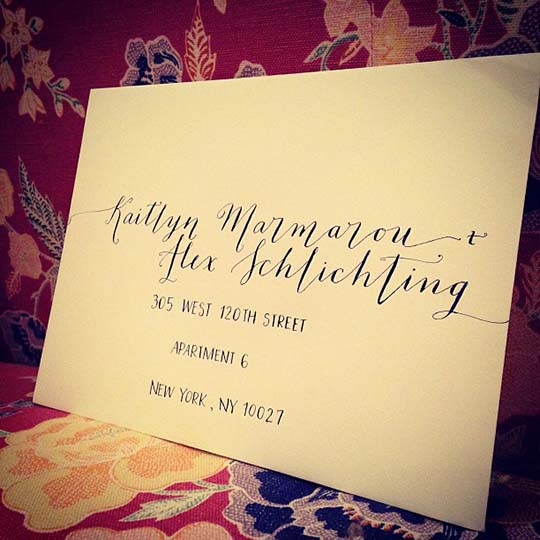 Kaitlyn Marmarou +
Alex Schlichting
305 WEST 120TH STREET
APARTMENT 6
NEW YORK, NY 10027